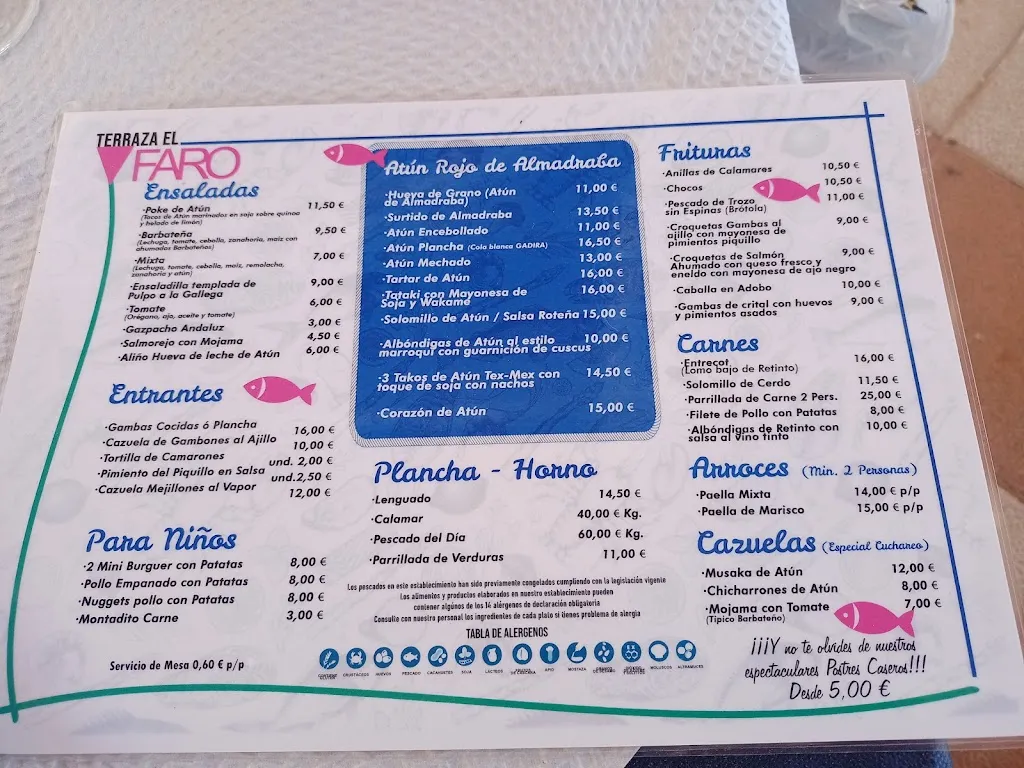 TERRAZA EL
FARO
Ensaladas
·Poke de Atún 11,50 €
(Tacos de Atún marinados en soja sobre quinoa
y helado de limón)
·Barbateña 9,50 €
(Lechuga, tomate, cebolla, zanahoria, maíz con
ahumados Barbateños)
·Mixta 7,00 €
(Lechuga, tomate, cebolla, maíz, remolacha,
zanahoria y atún)
·Ensaladilla templada de 9,00 €
Pulpo a la Gallega
·Tomate 6,00 €
(Orégano, ajo, aceite y tomate)
·Gazpacho Andaluz 3,00 €
·Salmorejo con Mojama 4,50 €
·Aliño Hueva de leche de Atún 6,00 €
Entrantes
·Gambas Cocidas ó Plancha 16,00 €
·Cazuela de Gambones al Ajillo 10,00 €
·Tortilla de Camarones und. 2,00 €
·Pimiento del Piquillo en Salsa und.2,50 €
·Cazuela Mejillones al Vapor 12,00 €
Para Niños
·2 Mini Burguer con Patatas 8,00 €
·Pollo Empanado con Patatas 8,00 €
·Nuggets pollo con Patatas 8,00 €
·Montadito Carne 3,00 €
Servicio de Mesa 0,60 € p/p
Atún Rojo de Almadraba
·Hueva de Grano (Atún 11,00 €
de Almadraba)
·Surtido de Almadraba 13,50 €
·Atún Encebollado 11,00 €
·Atún Plancha (Cola blanca GADIRA) 16,50 €
·Atún Mechado 13,00 €
·Tartar de Atún 16,00 €
·Tataki con Mayonesa de 16,00 €
Soja y Wakame
·Solomillo de Atún / Salsa Roteña 15,00 €
·Albóndigas de Atún al estilo 10,00 €
marroquí con guarnición de cuscus
·3 Takos de Atún Tex-Mex con 14,50 €
toque de soja con nachos
·Corazón de Atún 15,00 €
Plancha - Horno
·Lenguado 14,50 €
·Calamar 40,00 € Kg.
·Pescado del Día 60,00 € Kg.
·Parrillada de Verduras 11,00 €
Los pescados en este establecimiento han sido previamente congelados cumpliendo con la legislación vigente
Los alimentos y productos elaborados en nuestro establecimiento pueden
contener algúnos de los 14 alérgenos de declaración obligatoria
Consulte con nuestro personal los ingredientes de cada plato si tienes problema de alergia
TABLA DE ALERGENOS
CRUSTÁCEOS HUEVOS PESCADO CACAHUETES SOJA LÁCTEOS APIO MOSTAZA MOLUSCOS ALTRAMUCES
Frituras
·Anillas de Calamares 10,50 €
·Chocos 10,50 €
·Pescado de Trozo 11,00 €
sin Espinas (Brótola)
·Croquetas Gambas al 9,00 €
ajillo con mayonesa de
pimientos piquillo
·Croquetas de Salmón 9,00 €
Ahumado con queso fresco y
eneldo con mayonesa de ajo negro
·Caballa en Adobo 10,00 €
·Gambas de crital con huevos 9,00 €
y pimientos asados
Carnes
·Entrecot 16,00 €
(Lomo bajo de Retinto)
·Solomillo de Cerdo 11,50 €
·Parrillada de Carne 2 Pers. 25,00 €
·Filete de Pollo con Patatas 8,00 €
·Albóndigas de Retinto con 10,00 €
salsa al vino tinto
Arroces (Min. 2 Personas)
·Paella Mixta 14,00 € p/p
·Paella de Marisco 15,00 € p/p
Cazuelas (Especial Cuchareo)
·Musaka de Atún 12,00 €
·Chicharrones de Atún 8,00 €
·Mojama con Tomate 7,00 €
(Típico Barbateño)
¡¡¡Y no te olvides de nuestros
espectaculares Postres Caseros!!!
Desde 5,00 €